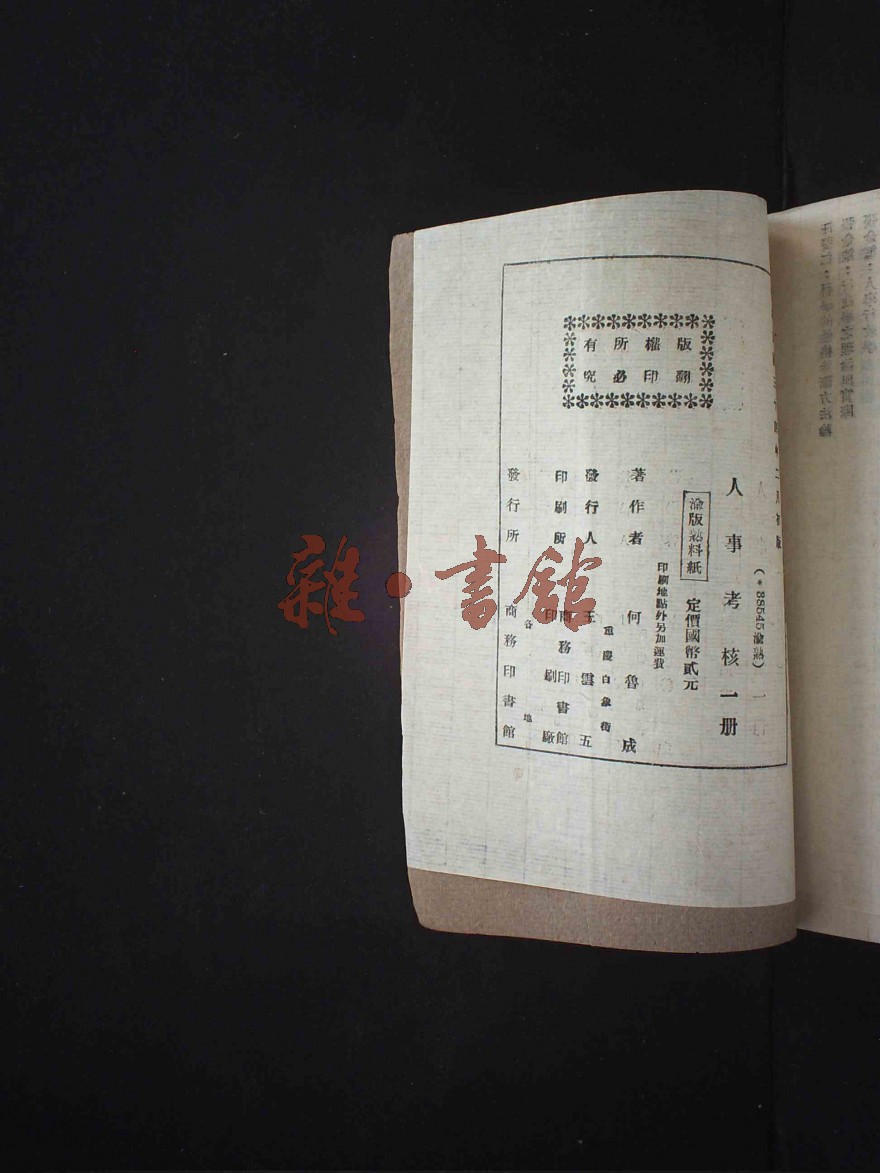 人事考核一册
（*88545渝熟）
渝版熟料紙
定價國幣貳元
印刷地點外另加運費
著作者 何魯成
發行人 王雲五
重慶白象街
印刷所 商務印書館
印刷廠
發行所 各地
商務印書館
版權所有
翻印必究
雜·書館